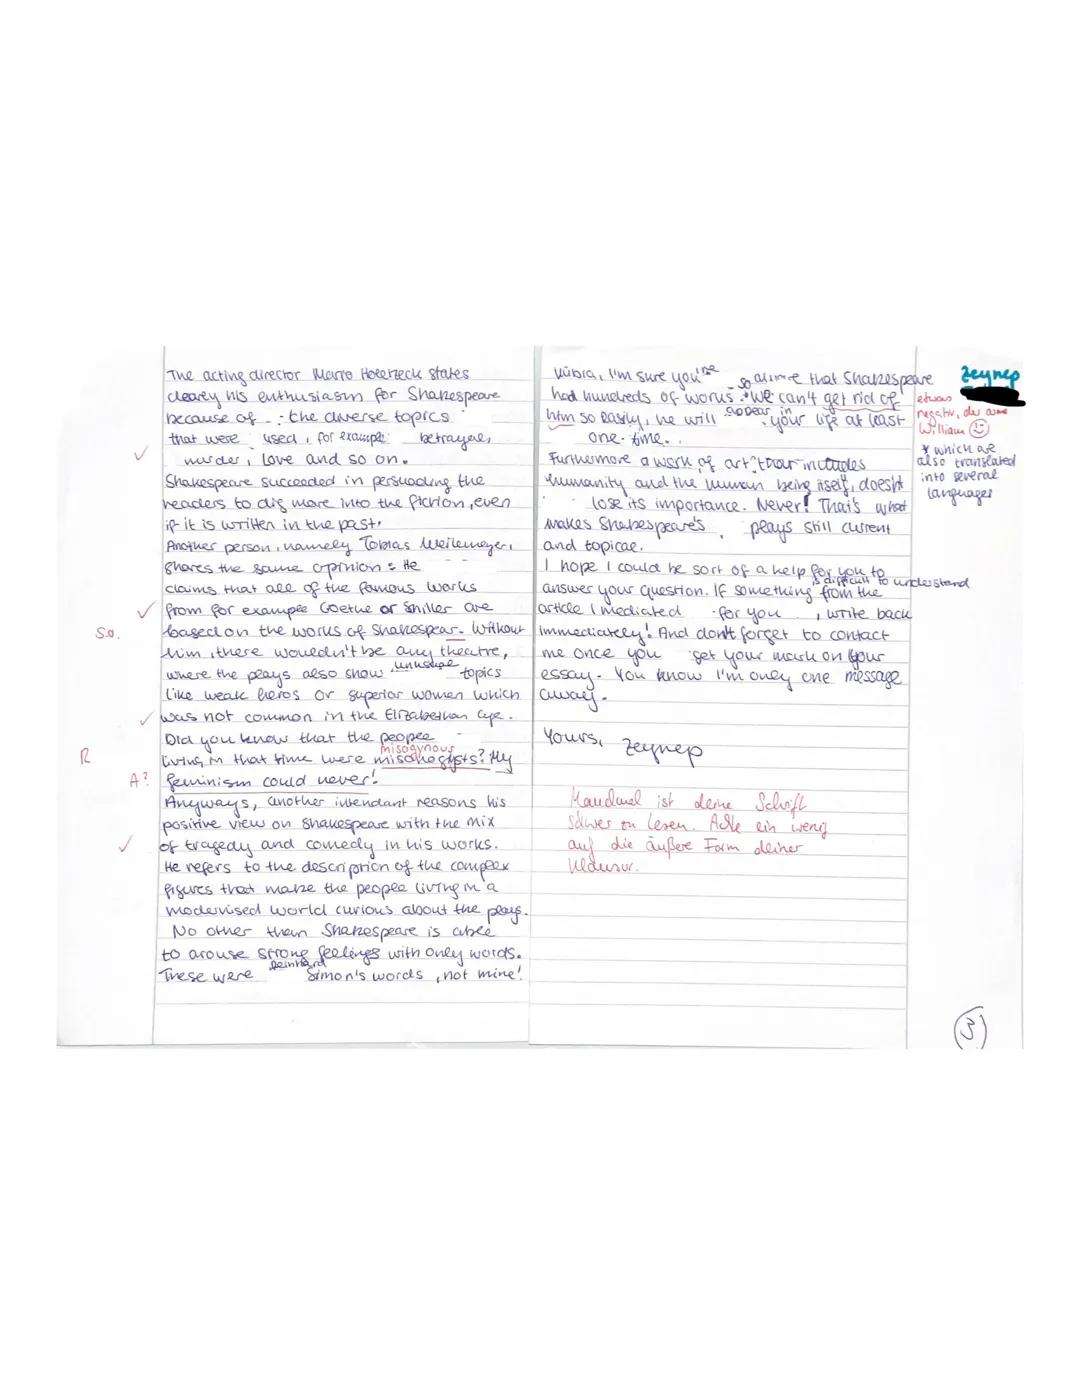 The acting director Mario Holetzeck states
clearly his enthusiasm for Shakespeare
because of the diverse topics
that were used, for example betrayal,
murder, love and so on.
Shakespeare succeeded in persuading the
readers to dig more into the fiction, even
if it is written in the past.
Another person, namely Tobias Weilemeyer,
shares the same opinion: He
claims that all of the famous works
from for example Goethe or Shiller are
S.o.
based on the works of Shakespear. Without
him, there wouldn't be any theatre,
where the plays also show unusual topics
like weak heros or superior women which
was not common in the Elizabethan age.
Did you know that the people
misogynous
R
living in that time were misonogysts? My
A?
feminism could never!
Anyways, another intendant reasons his
positive view on Shakespeare with the mix
of tragedy and comedy in his works.
He refers to the description of the complex
figures that make the people living in a
modernised world curious about the plays.
No other than Shakespeare is able
to arouse strong feelings with only words.
These were Leinhard Simon's words, not mine!
Kübra, I'm sure you're so aware that Shakespeare
had hundreds of works.* We can't get rid of
him so easily, he will appear in your life at least
one time.
Furthermore a work of art, that includes
humanity and the human being itself, doesn't
lose its importance. Never! That's what
makes Shakespeare's plays still current
and topical.
I hope I could be sort of a help for you to
answer your question. If something from the
is difficult to understand
article I mediated for you, write back
immediately! And don't forget to contact
me once you get your mark on your
essay. You know I'm only one message
away.
Yours, Zeynep
Manchmal ist deine Schrift
schwer zu lesen. Achte ein wenig
auf die äußere Form deiner
Klausur.
Zeynep
etwas
negativ, der arme
William
* which are
also translated
into several
languages
3